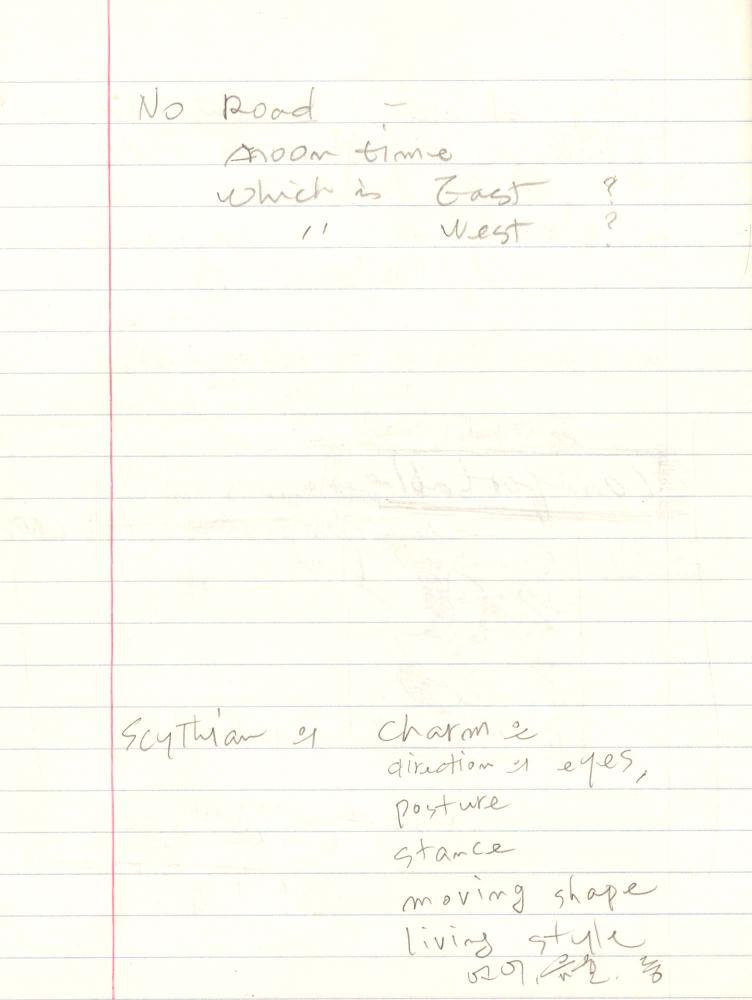 No Road —
noon time
which is East ?
〃 West ?
Scythian 의 charm 은
direction 의 eyes,
posture
stance
moving shape
living style